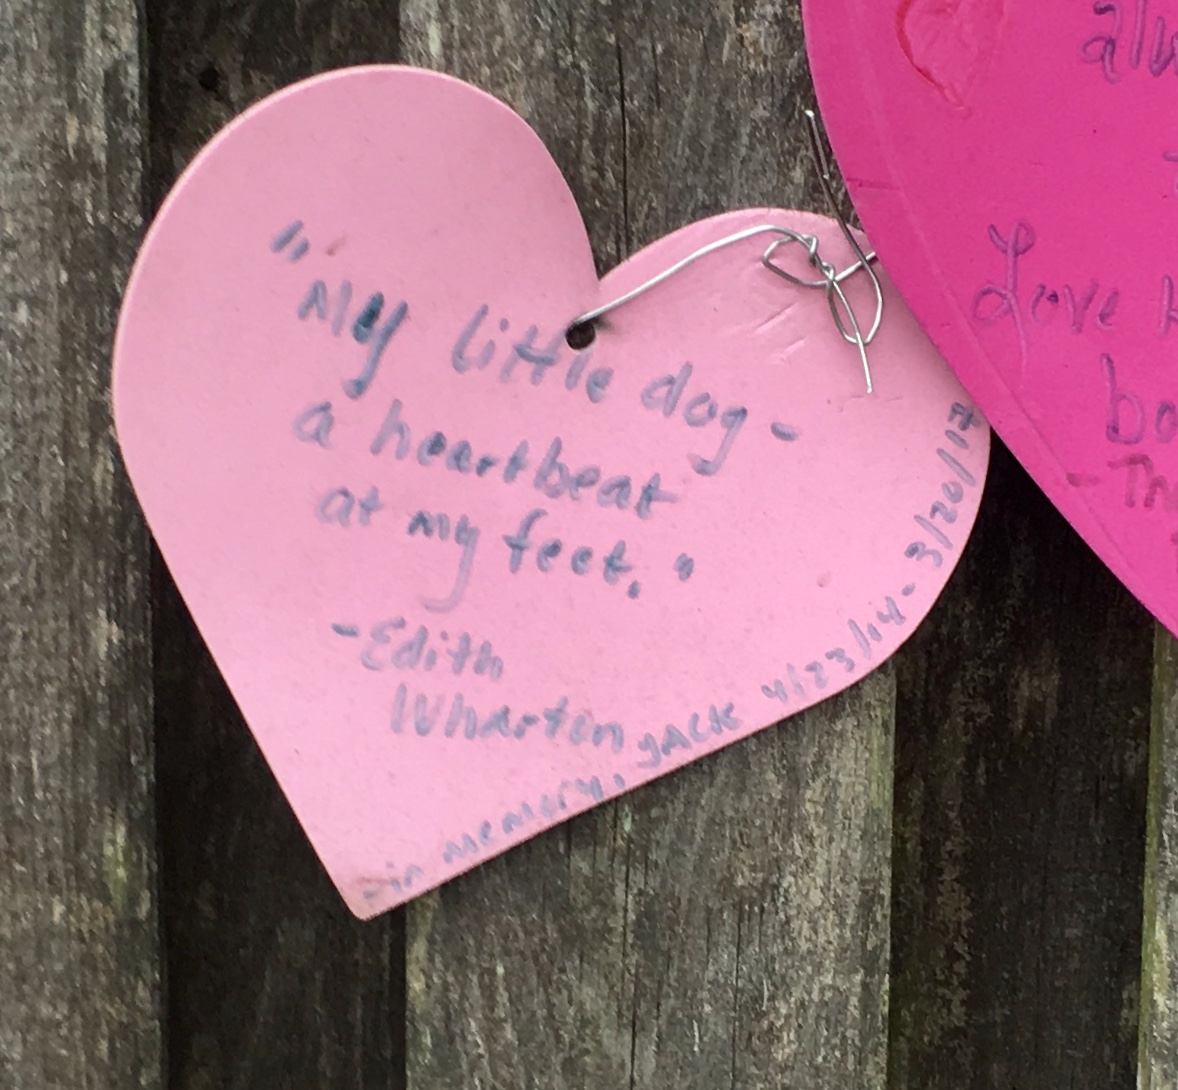 "My little dog-
a heartbeat
at my feet."
-Edith
Wharton
-in memory, JACK 4/23/14 - 3/20/17
Love